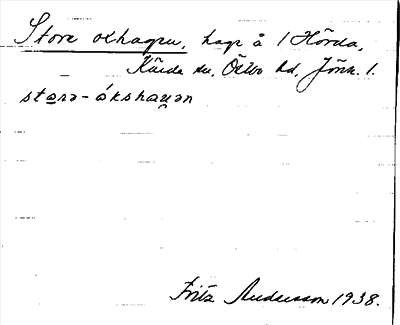 Store oxhagen, hage å 1 Hörda,
Kärda sn, Östbo hd, Jönk. l.
sto̲rə-ókshaɡ̯ən
Fritz Andersson 1938.